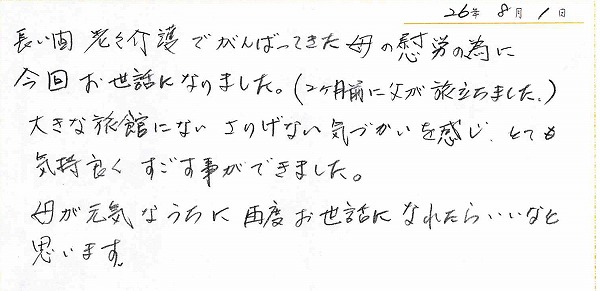 26年 8月 1日
長い間 老々介護でがんばってきた母の慰労の為に
今回お世話になりました。(2ヶ月前に父が旅立ちました。)
大きな旅館にない さりげない気づかいを感じ、とても
気持良く すごす事ができました。
母が元気なうちに 再度お世話になれたらいいなと
思います。